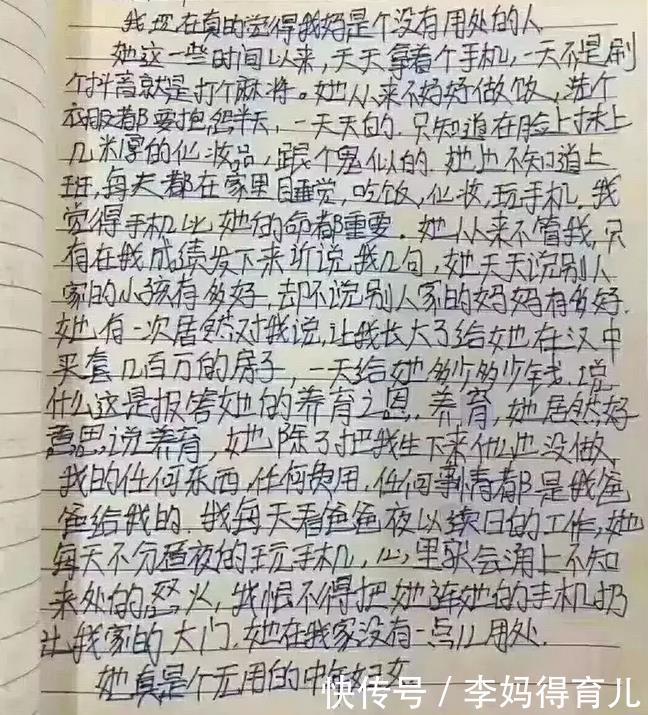 我现在真的觉得我妈是个没有用处的人
她这一些时间以来，天天拿着个手机，一天不是刷
个抖音就是打个麻将。她从来不好好做饭，洗个
衣服都要抱怨半天，一天天的，只知道在脸上抹上
几米厚的化妆品，跟个鬼似的，她也不知道上
班，每天都在家里睡觉，吃饭，化妆，玩手机，我
觉得手机比她的命都重要。她从来不管我，只
有在我成绩发下来听说我几句，她天天说别人
家的小孩有多好，却不说别人家的妈妈有多好，
她有一次居然对我说，让我长大了给她在汉中
买套几百万的房子，一天给她多少多少钱，说
什么这是报答她的养育之恩，养育，她居然好
意思说养育，她除了把我生下来什么也没做，
我的任何东西，任何费用，任何事情都是我爸
爸给我的，我每天看爸爸夜以续日的工作，她
每天不分昼夜的玩手机，心里就会涌上不知
来处的怒火，我恨不得把她连她的手机扔
让我家的大门，她在我家没有一点儿用处.
她真是个无用的中年妇女
快传号 / 李妈得育儿